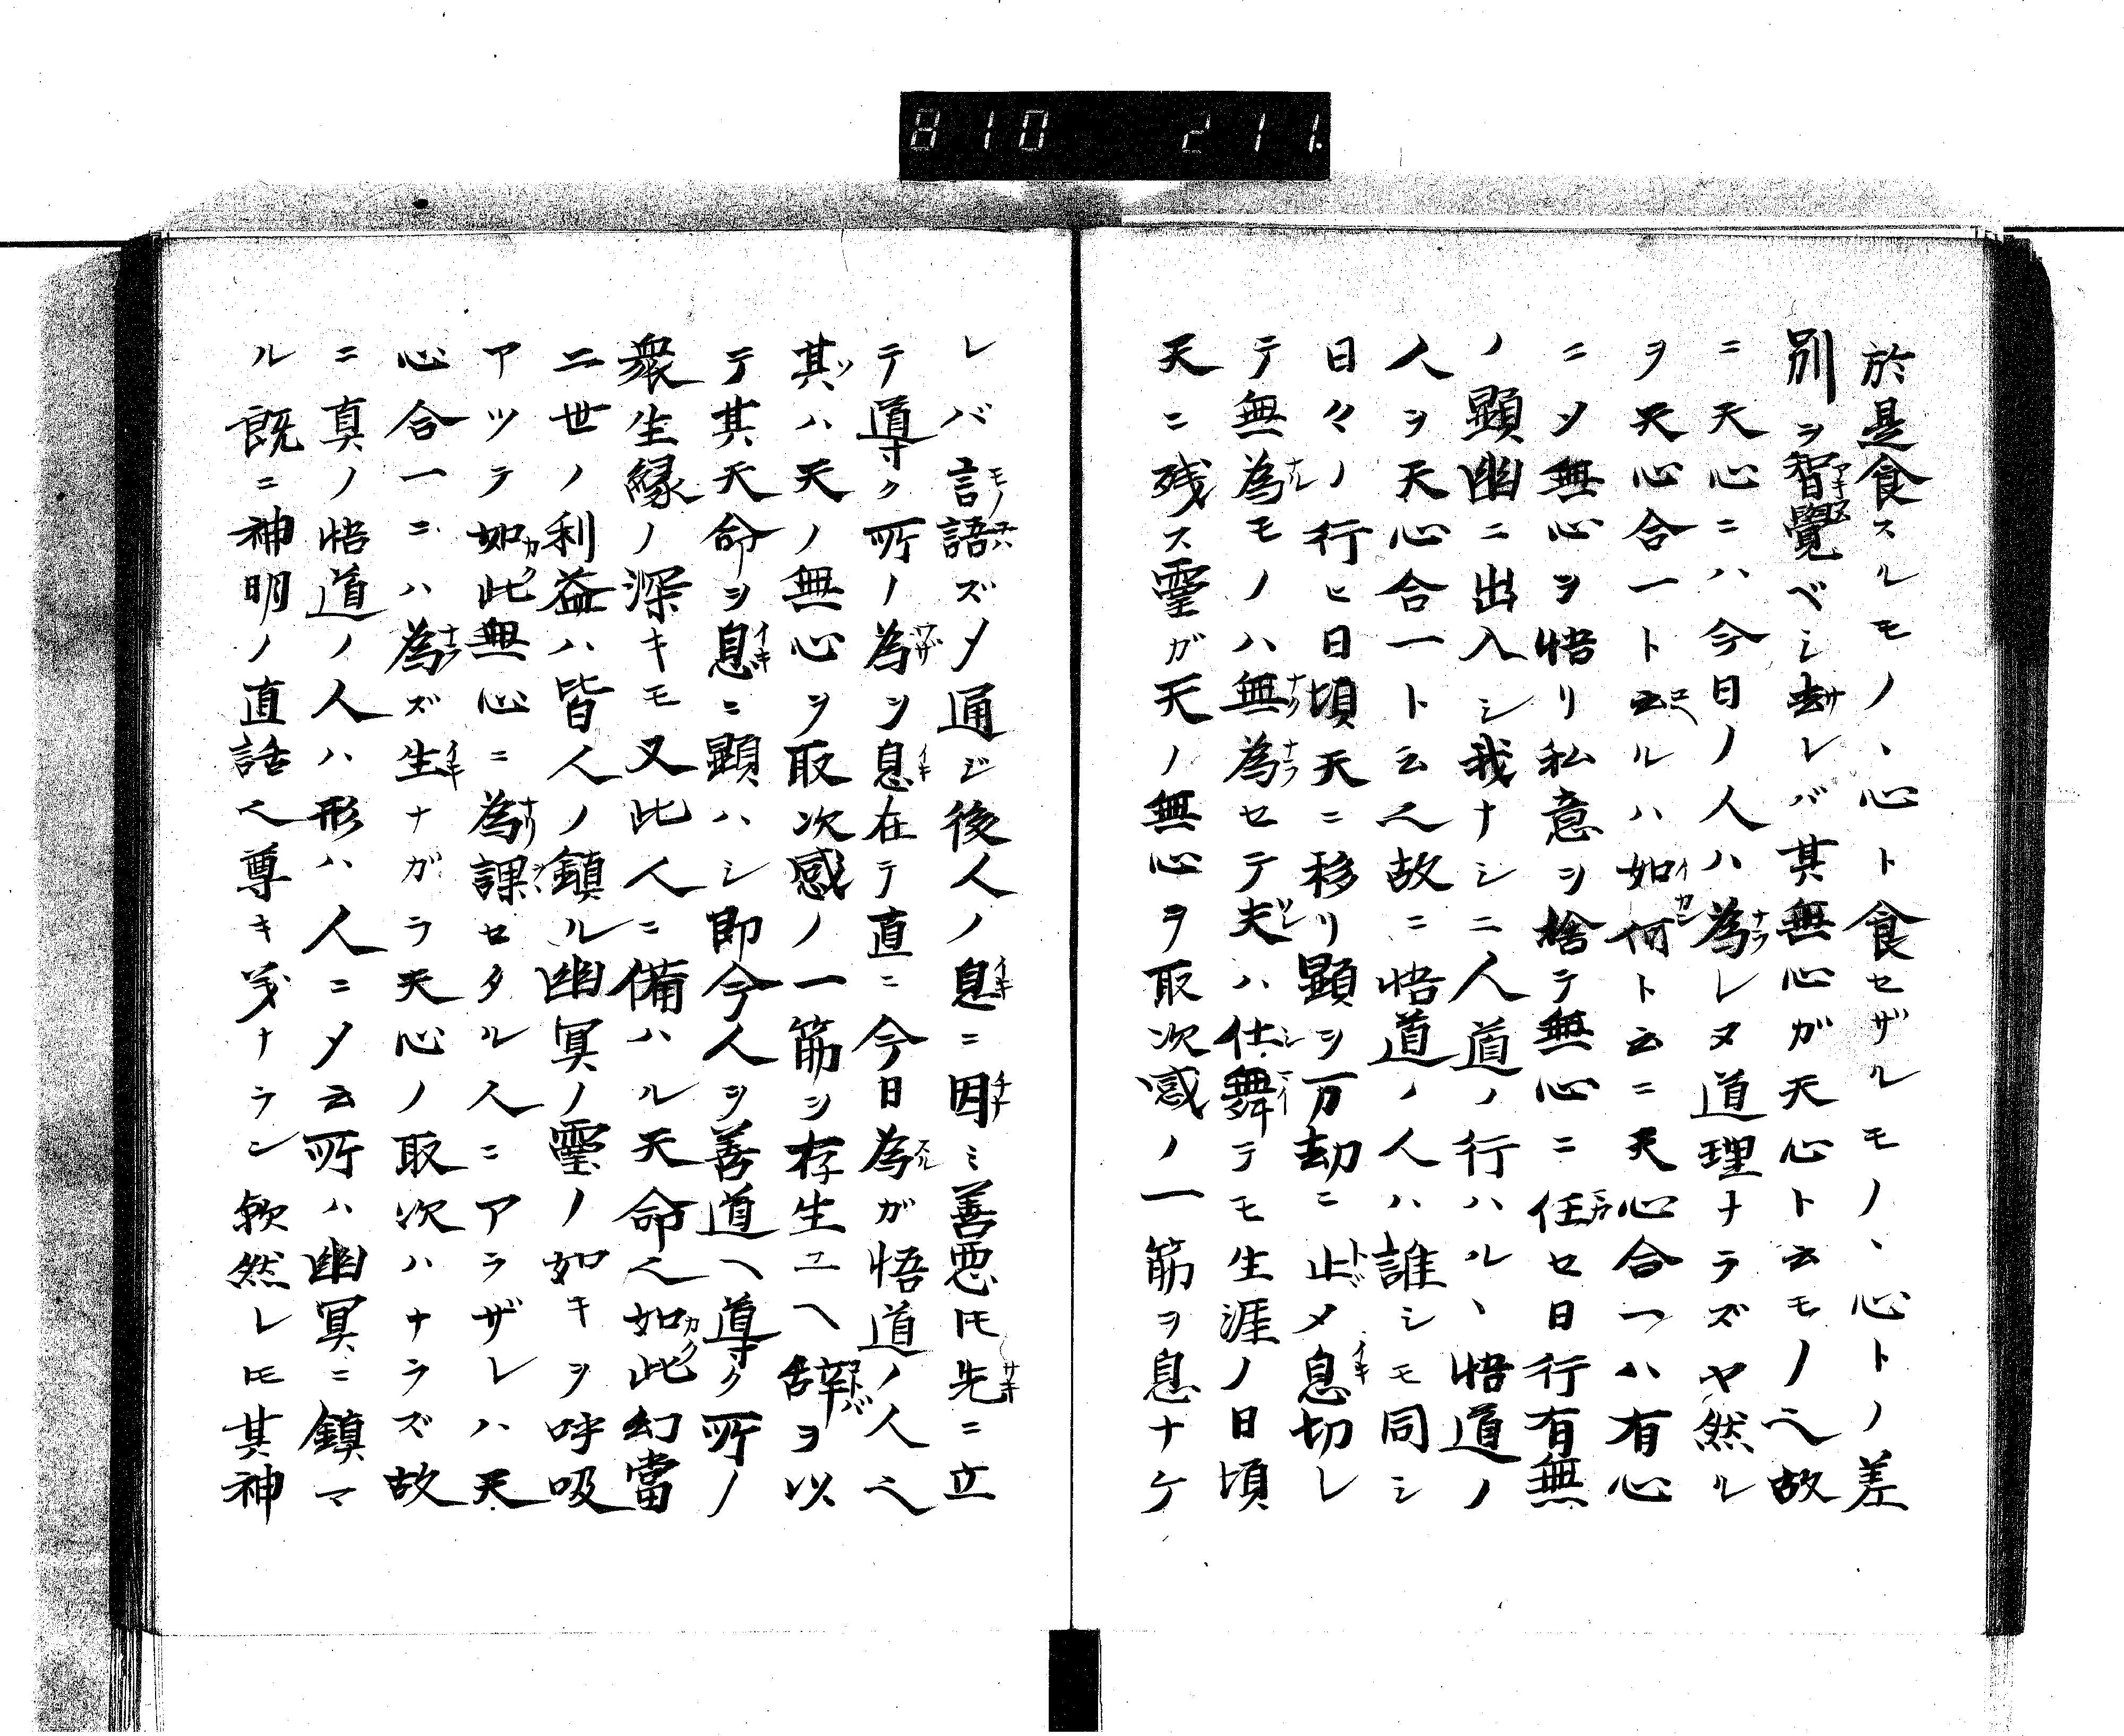 810 211
於是食スルモノヽ心ト食セザルモノヽ心トノ差
別ヲ智覺ベシ去レバ其無心ガ天心ト云モノ也故
ニ天心ニハ今日ノ人ハ為レヌ道理ナラズヤ然ル
ヲ天心合一ト云ルハ如何ト云ニ天心合一ハ有心
ニ〆無心ヲ悟リ私意ヲ捨テ無心ニ任セ日行有無
ノ顕幽ニ出入シ我ナシニ人道ノ行ハルヽ悟道ノ
人ヲ天心合一ト云也故ニ悟道ノ人ハ誰シモ同シ
日々ノ行ヒ日頃天ニ移リ顕ヲ万劫ニ止メ息切レ
テ無為モノハ無為セテ夫ハ仕舞テモ生涯ノ日頃
天ニ残ス靈ガ天ノ無心ヲ取次感ノ一筋ヲ息ナケ
レバ言語ズ〆通ジ後人ノ息ニ因ミ善悪ヒ先ニ立
テ導ク所ノ為ヲ息在テ直ニ今日為ガ悟道ノ人也
其ハ天ノ無心ヲ取次感ノ一筋ヲ存生ユヘ辞ヲ以
テ其天命ヲ息ニ顕ハシ即今人ヲ善道ヘ導ク所ノ
衆生縁ノ深キモ又此人ニ備ハル天命也如此幻當
二世ノ利益ハ皆人ノ鎮ル幽冥ノ靈ノ如キヲ呼吸
アツテ如此無心ニ為課セタル人ニアラザレハ天
心合一ニハ為ズ生ナガラ天心ノ取次ハナラズ故
ニ真ノ悟道ノ人ハ形ハ人ニ〆云所ハ幽冥ニ鎮マ
ル既ニ神明ノ直話也尊キ㕝ナラン歟然レ𪜈其神